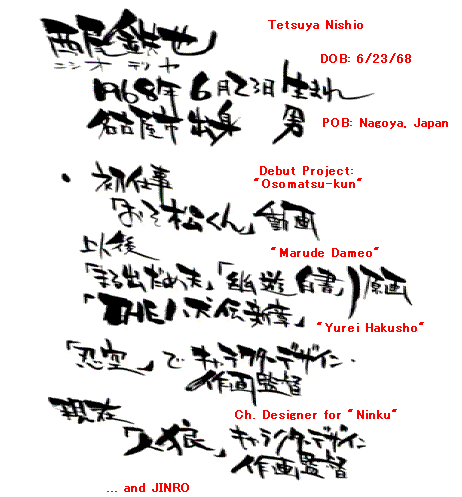 西尾鉄世 Tetsuya Nishio
ニシオ テツヤ DOB: 6/23/68
1968年 6月23日 生まれ
名古屋市出身 男 POB: Nagoya, Japan
・ 初仕事 Debut Project:
"Osomatsu-kun"
「おそ松くん」動画
以後 "Marude Dameo"
「まる出だめ夫」「幽遊白書」原画
「THE八犬伝新章」 "Yurei Hakusho"
「忍空」で キャラクターデザイン・
作画監督
現在 Ch. Designer for "Ninku"
「人狼」キャラクターデザイン
作画監督
... and JINRO